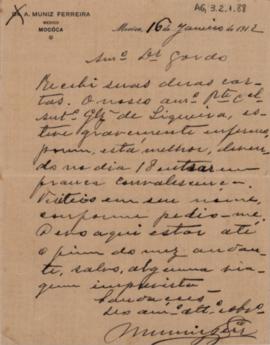 AG.3.2.1.88
DR. A. MUNIZ FERREIRA
MEDICO
MOCÓCA
Mococa, 16 de Janeiro de 1912
Am.º Dr Gordo
Recebi suas duas car-
tas. O nosso am.º
de Siqueira, es-
teve gravemente enfermo,
porem, está melhor, deven-
do no dia 18 entrar em
franca convalescença.
Visitei-o em seu nome,
conforme pedio-me.
Devo aqui estar até
o fim do mez andan-
te, salvo, alguma via-
gem imprevista.
Saudações